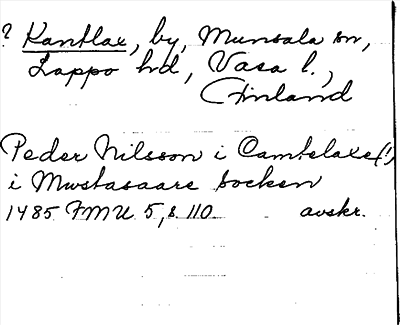 ? Kantlax, by, Munsala sn,
Lappo hd, Vasa l.,
Finland
Peder Nilsson i Camtelaxe (!)
i Mwstasaare socken
1485 FMU 5, s. 110 avskr.